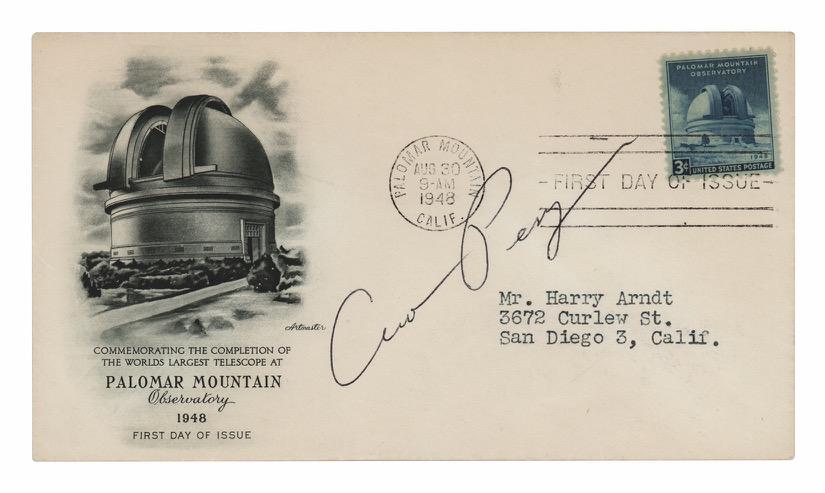 PALOMAR MOUNTAIN
OBSERVATORY
1948
3¢ UNITED STATES POSTAGE
PALOMAR MOUNTAIN
AUG 30
9-AM
1948
CALIF.
- FIRST DAY OF ISSUE -
Mr. Harry Arndt
3672 Curlew St.
San Diego 3, Calif.
Artmaster
COMMEMORATING THE COMPLETION OF
THE WORLDS LARGEST TELESCOPE AT
PALOMAR MOUNTAIN
Observatory
1948
FIRST DAY OF ISSUE